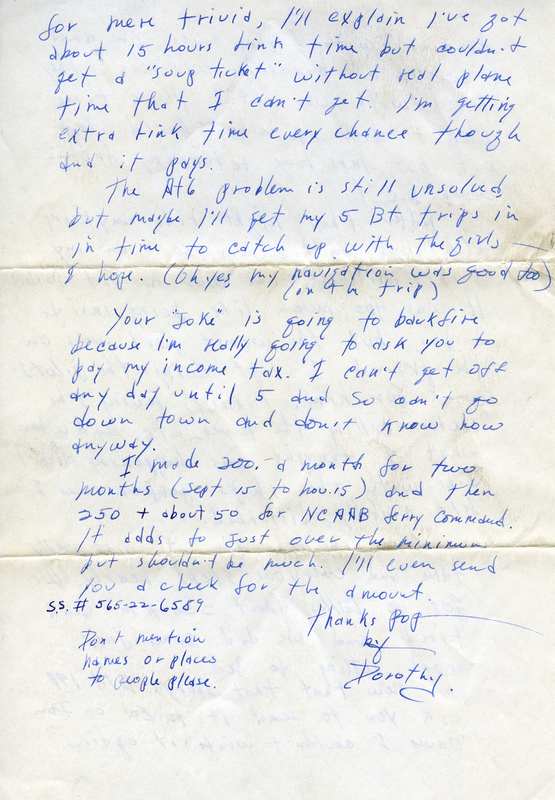 for mere trivia, I'll explain I've got
about 15 hours link time but couldn't
get a "soup ticket" without real plane
time that I can't get. I'm getting
extra link time every chance though
and it pays.
The At6 problem is still unsolved,
but maybe I'll get my 5 Bt trips in
in time to catch up with the girls —
I hope. (Oh yes, my navigation was good too)
(on the trip)
Your "Joke" is going to backfire
because I'm really going to ask you to
pay my income tax. I can't get off
any day until 5 and so can't go
down town and don't know how
anyway.
I made 200. a month for two
months (Sept 15 to nov. 15) and then
250 + about 50 for NCAAB ferry Command.
It adds to just over the minimum
but shouldn't be much. I'll even send
you a check for the amount.
S.S. # 565-22-6589
Thanks Pop
Don't mention
names or places
to people please.
Dorothy.